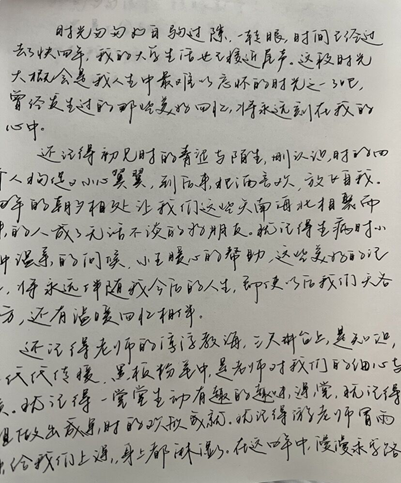 时光匆匆如白驹过隙,一转眼,时间已经过
去了快四年,我的大学生活也已接近尾声。这段时光
大概会是我人生中最难以忘怀的时光之一了吧,
曾经发生过的那些美好回忆,将永远刻在我的
心中。
还记得初见时的青涩与陌生,刚认识时的四
个人相处小心翼翼,到后来把酒言欢,放飞自我。
四年的朝夕相处让我们这些天南海北相聚而
来的人成了无话不谈的好朋友。犹记得生病时小
温柔的问候,小王暖心的帮助,这些美好的记
将永远伴随我今后的人生,即使以后我们天各
方,还有温暖回忆相伴。
还记得老师的谆谆教诲,三尺讲台上,是知识,
代代传授,黑板粉笔中,是老师对我们的细心与
犹记得一堂堂生动有趣的趣味课堂,犹记得
做出成果时的欢欣成就。犹记得 老师冒雨
给我们上课,身上都淋湿了。在这四年中,漫漫求学路